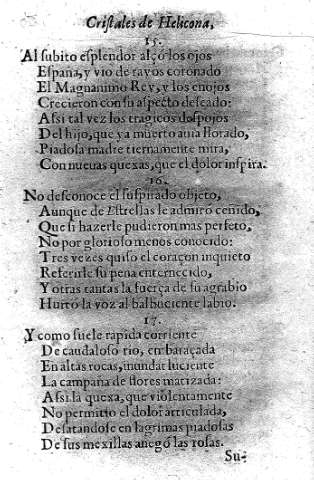 Cristales de Helicona,
15.
Al subito esplendor alçò los ojos
España, y vio de rayos coronado
El Magnanimo Rey, y los enojos
Crecieron con su aspecto deseado:
Assi tal vez los tragicos dospojos
Del hijo, que ya muerto auia llorado,
Piadosa madre tiernamente mira,
Con nueuas quexas, que el dolor inspira.
16.
No desconoce el suspirado objeto,
Aunque de Estrellas le admirò ceñido,
Que si hazerle pudieron mas perfeto,
No por glorioso menos conocido:
Tres vezes quiso el coraçon inquieto
Referirle su pena enternecido,
Y otras tantas la fuerça de su agrabio
Hurtò la voz al balbuciente labio.
17.
Y como suele rapida corriente
De caudaloso rio, embaraçada
En altas rocas, inundar luciente
La campaña de flores matizada:
Assi la quexa, que violentamente
No permitio el dolor articulada,
Desatandose en lagrimas piadosas
De sus mexillas anegò las rosas.
Su-